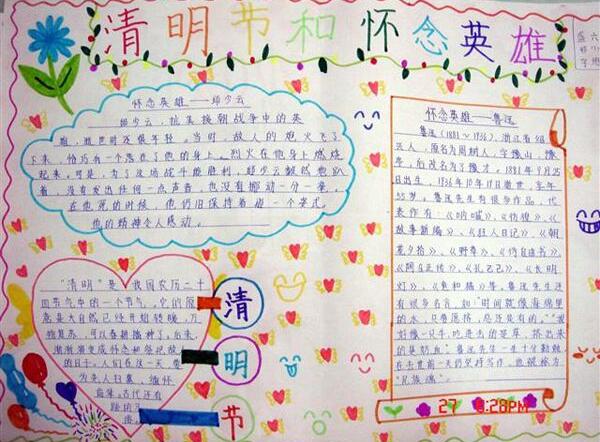 清明节和怀念英雄
怀念英雄——邱少云
邱少云,抗美援朝战争中的英
雄,献世时还很年轻。当时,敌人的炮火飞了
下来,恰巧有一个落在了他的身上。烈火在他身上燃烧
起来,可是,为了这场战斗能胜利,邱少云毅然地趴
着,没有发出任何一点声音,也没有挪动一分一毫,
在他死的时候,他仍旧保持着这一个姿式。
他的精神令人感动。
怀念英雄——鲁迅
鲁迅(1881~1936),浙江省绍
兴人,原名为周树人,字豫山,豫
亭,后改名为了豫才。1881年9月25
日出生,1936年10月19日逝世,享年
55岁。鲁迅先生有很多作品,代
表作有:《呐喊》、《彷徨》、《
故事新编》、《狂人日记》、《朝
花夕拾》、《野草》、《伪自由书》、
《阿Q正传》、《孔乙己》、《长明
灯》、《鱼和橘》等。鲁迅先生还
有很多名言,如:"时间就像海绵里
的水,只要愿挤,总还是有的。""我
好像一只牛,吃进去的是草,挤出来
的是奶血"鲁迅先生一生十分勤敏,
在去世前一天仍坚持写作,他被称为
"民族魂"。
"清明"是我国农历二十
四节气中的一个节气,它的原
意是大自然已经开始转暖,万
物复苏,可以春耕播种了,后来,
渐渐演变成怀念和祭祀故
的日子。人们在这一天要
为先人扫墓,缅怀
清
明
节
27 3:28PM